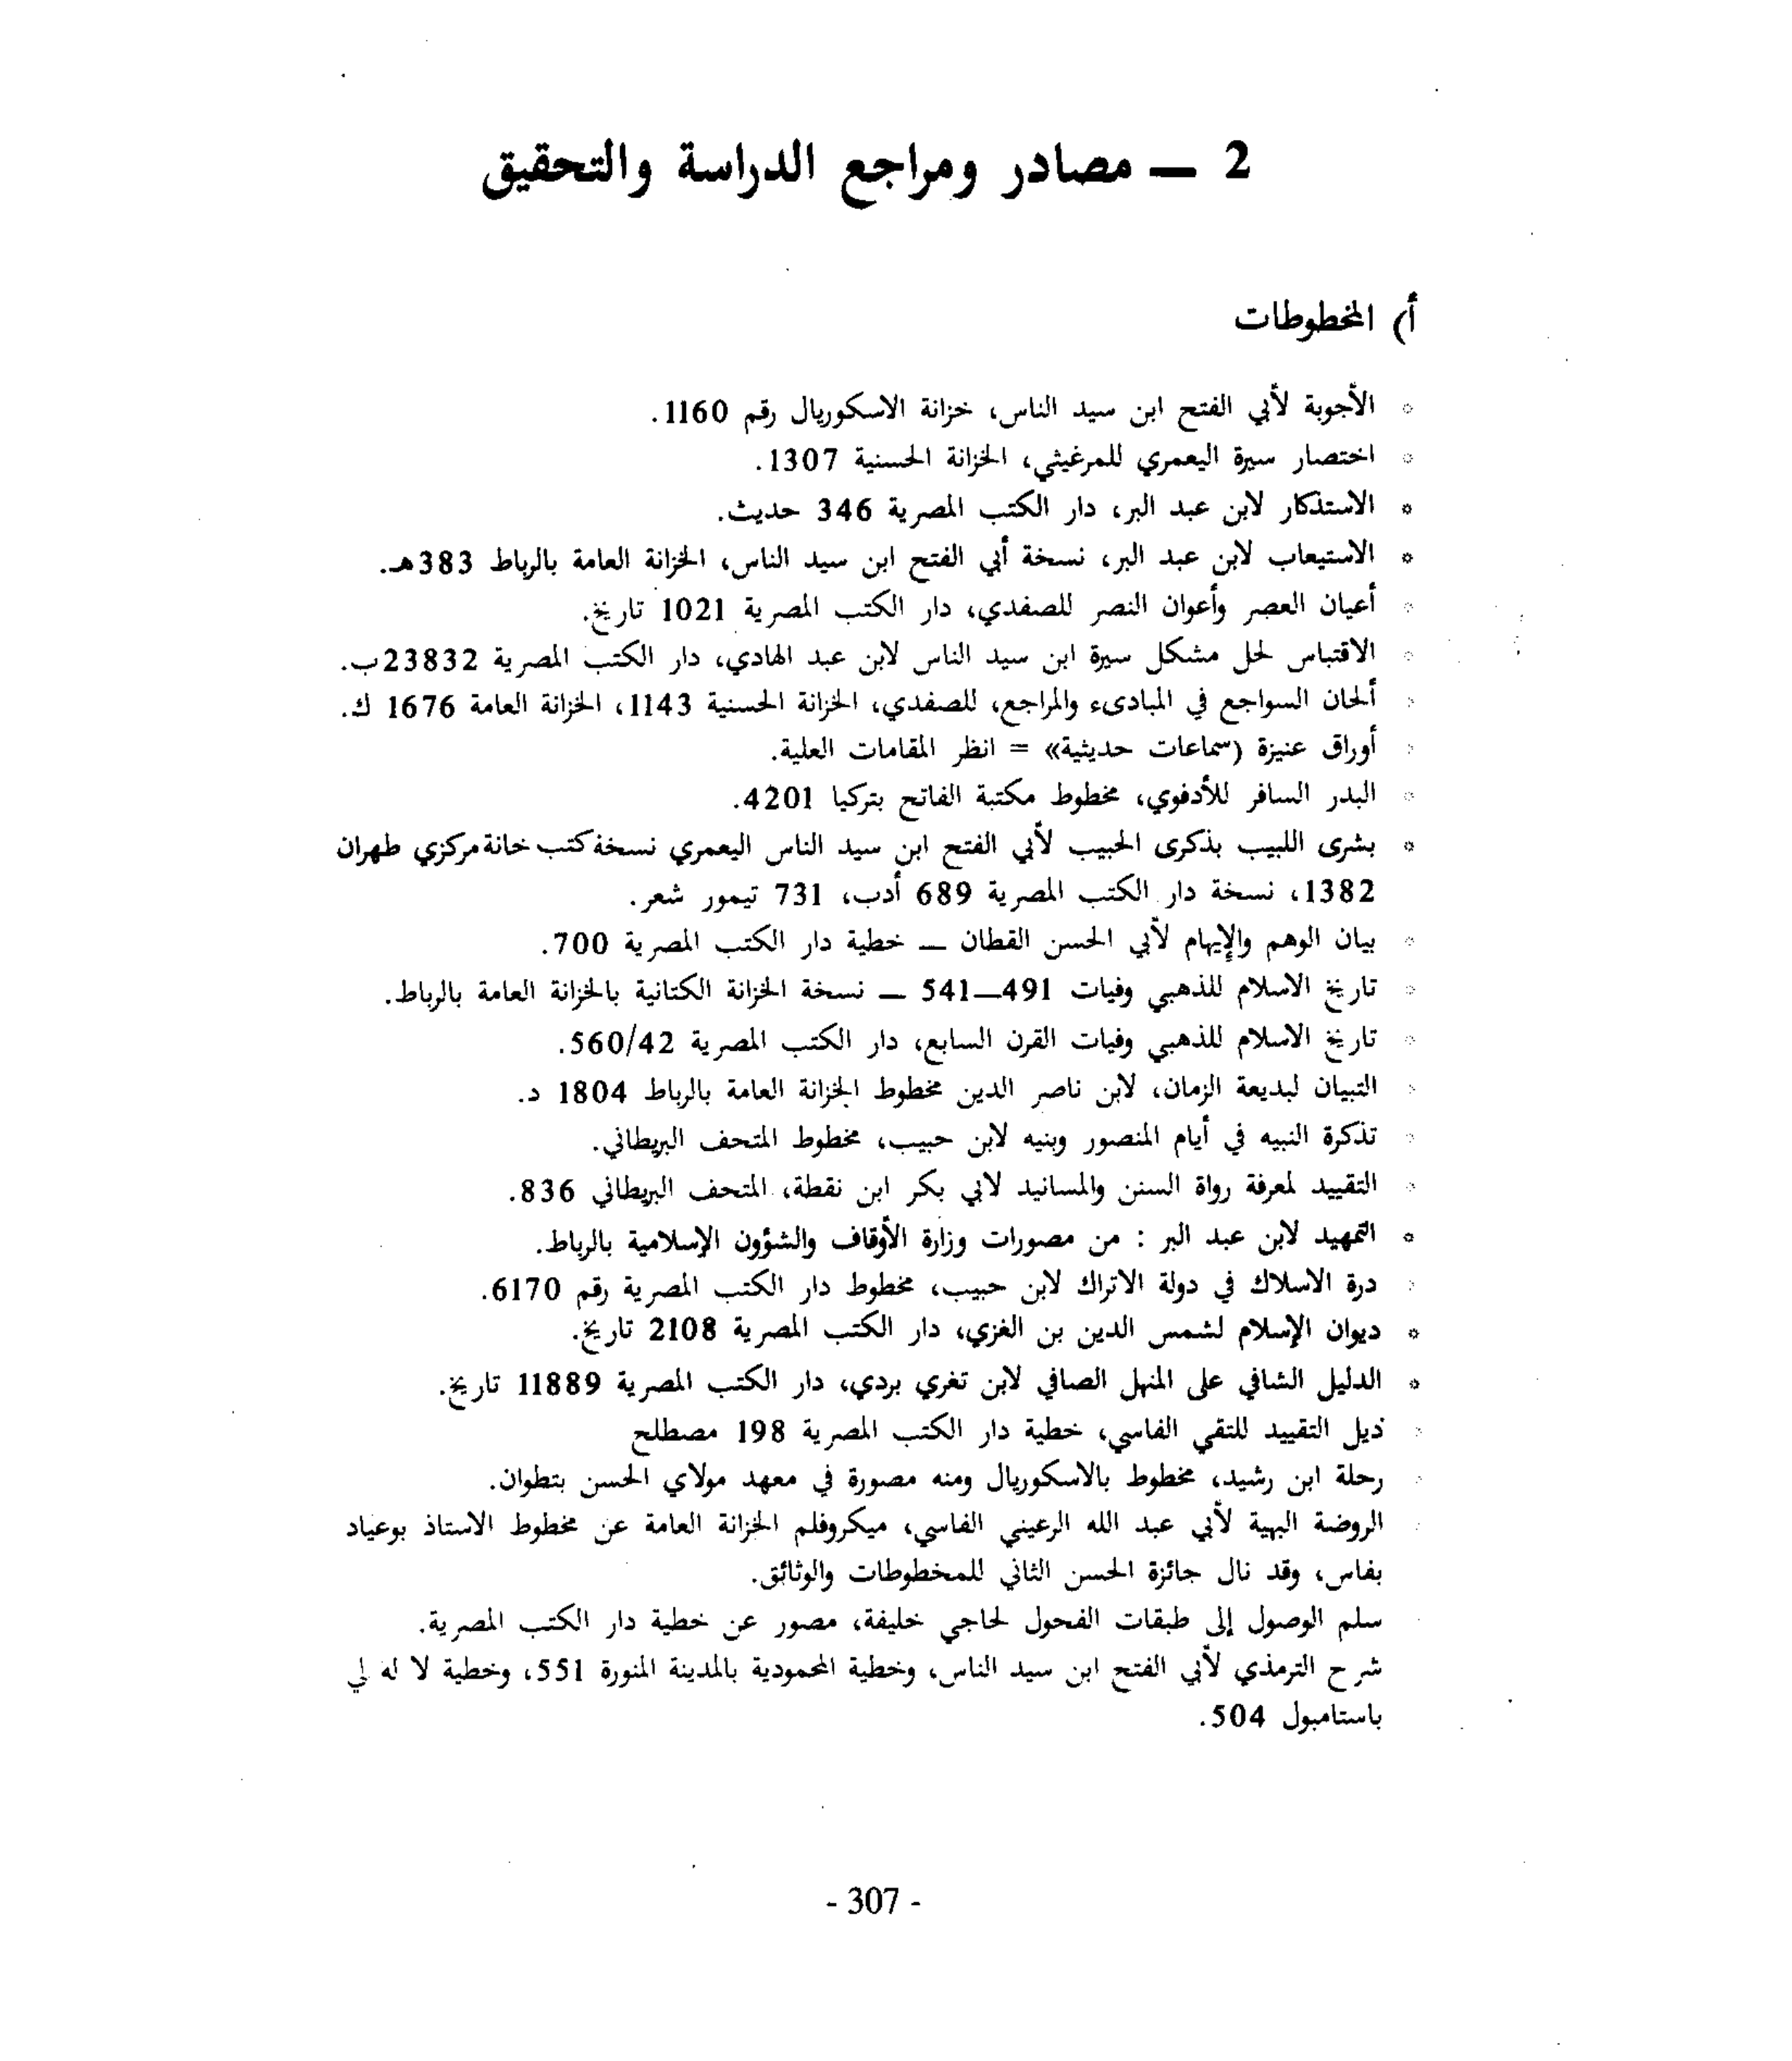 2 — مصادر ومراجع الدراسة والتحقيق
أ) المخطوطات
* الأجوبة لأبي الفتح ابن سيد الناس، خزانة الاسكوريال رقم 1160.
* اختصار سيرة اليعمري للمرغيثي، الخزانة الحسنية 1307.
* الاستذكار لابن عبد البر، دار الكتب المصرية 346 حديث.
* الاستيعاب لابن عبد البر، نسخة أبي الفتح ابن سيد الناس، الخزانة العامة بالرباط 383هـ.
* أعيان العصر وأعوان النصر للصفدي، دار الكتب المصرية 1021 تاريخ.
* الاقتباس لحل مشكل سيرة ابن سيد الناس لابن عبد الهادي، دار الكتب المصرية 23832ب.
* ألحان السواجع في المبادىء والمراجع، للصفدي، الخزانة الحسنية 1143، الخزانة العامة 1676 ك.
* أوراق عنيزة (سماعات حديثية» = انظر المقامات العلية.
* البدر السافر للأدفوي، مخطوط مكتبة الفاتح بتركيا 4201.
* بشرى اللبيب بذكرى الحبيب لأبي الفتح ابن سيد الناس اليعمري نسخة كتب خانة مركزي طهران
1382، نسخة دار الكتب المصرية 689 أدب، 731 تيمور شعر.
* بيان الوهم والإيهام لأبي الحسن القطان — خطية دار الكتب المصرية 700.
* تاريخ الاسلام للذهبي وفيات 491—541 — نسخة الخزانة الكتانية بالخزانة العامة بالرباط.
* تاريخ الاسلام للذهبي وفيات القرن السابع، دار الكتب المصرية 560/42.
* التبيان لبديعة الزمان، لابن ناصر الدين مخطوط الخزانة العامة بالرباط 1804 د.
* تذكرة النبيه في أيام المنصور وبنيه لابن حبيب، مخطوط المتحف البريطاني.
* التقييد لمعرفة رواة السنن والمسانيد لابي بكر ابن نقطة، المتحف البريطاني 836.
* التمهيد لابن عبد البر : من مصورات وزارة الأوقاف والشؤون الإسلامية بالرباط.
* درة الاسلاك في دولة الاتراك لابن حبيب، مخطوط دار الكتب المصرية رقم 6170.
* ديوان الإسلام لشمس الدين بن الغزي، دار الكتب المصرية 2108 تاريخ.
* الدليل الشافي على المنهل الصافي لابن تغري بردي، دار الكتب المصرية 11889 تاريخ.
* ذيل التقييد للتقي الفاسي، خطية دار الكتب المصرية 198 مصطلح
* رحلة ابن رشيد، مخطوط بالاسكوريال ومنه مصورة في معهد مولاي الحسن بتطوان.
* الروضة البهية لأبي عبد الله الرعيني الفاسي، ميكروفلم الخزانة العامة عن مخطوط الاستاذ بوعياد
بفاس، وقد نال جائزة الحسن الثاني للمخطوطات والوثائق.
سلم الوصول إلى طبقات الفحول لحاجي خليفة، مصور عن خطية دار الكتب المصرية.
شرح الترمذي لأبي الفتح ابن سيد الناس، وخطية المحمودية بالمدينة المنورة 551، وخطية لا له لي
باستامبول 504.
- 307 -